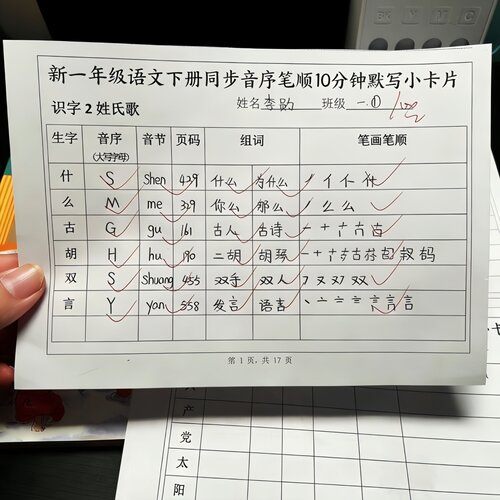 新一年级语文下册同步音序笔顺10分钟默写小卡片
识字2 姓氏歌 姓名 李 班级 一.①
生字 音序 (大写字母) 音节 页码 组词 笔画笔顺
什 S Shen 439 什么 为什么 丿 亻 亻 什
么 M me 329 你么 那么 丿 么 么
古 G gu 161 古人 古诗 一 十 十 古 古
胡 H hu 190 二胡 胡琴 一 十
双 S Shuang 455 双手 双人 フ 又 双 双
言 Y yan 558 发言 语言 丶 亠 言 言
第 1 页,共 17 页
产
党
太
阳